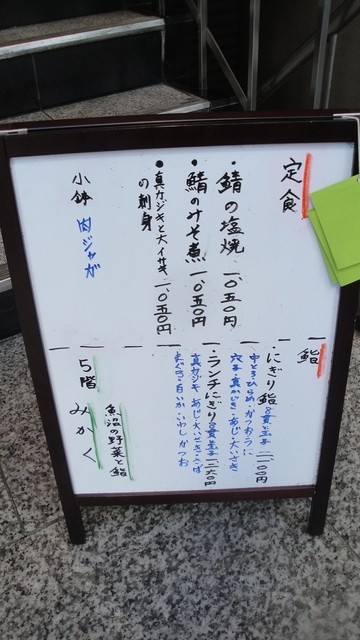 定食
・鯖の塩焼 一、〇五〇円
・鯖のみそ煮 一、〇五〇円
・真カジキと大イサキ
の刺身 一、〇五〇円
小鉢 肉ジャガ
鮨
・にぎり鮨 8貫・玉子 二一〇〇円
中とろ・ひらめ・かつお・うに
穴子・真かじき・あじ・大いさき
・ランチにぎり 8貫・玉子 一二六〇円
真カジキ・あじ・大いさき・さば
白いか・いわし・かつお
魚沼の野菜と鮨
5階 みかく